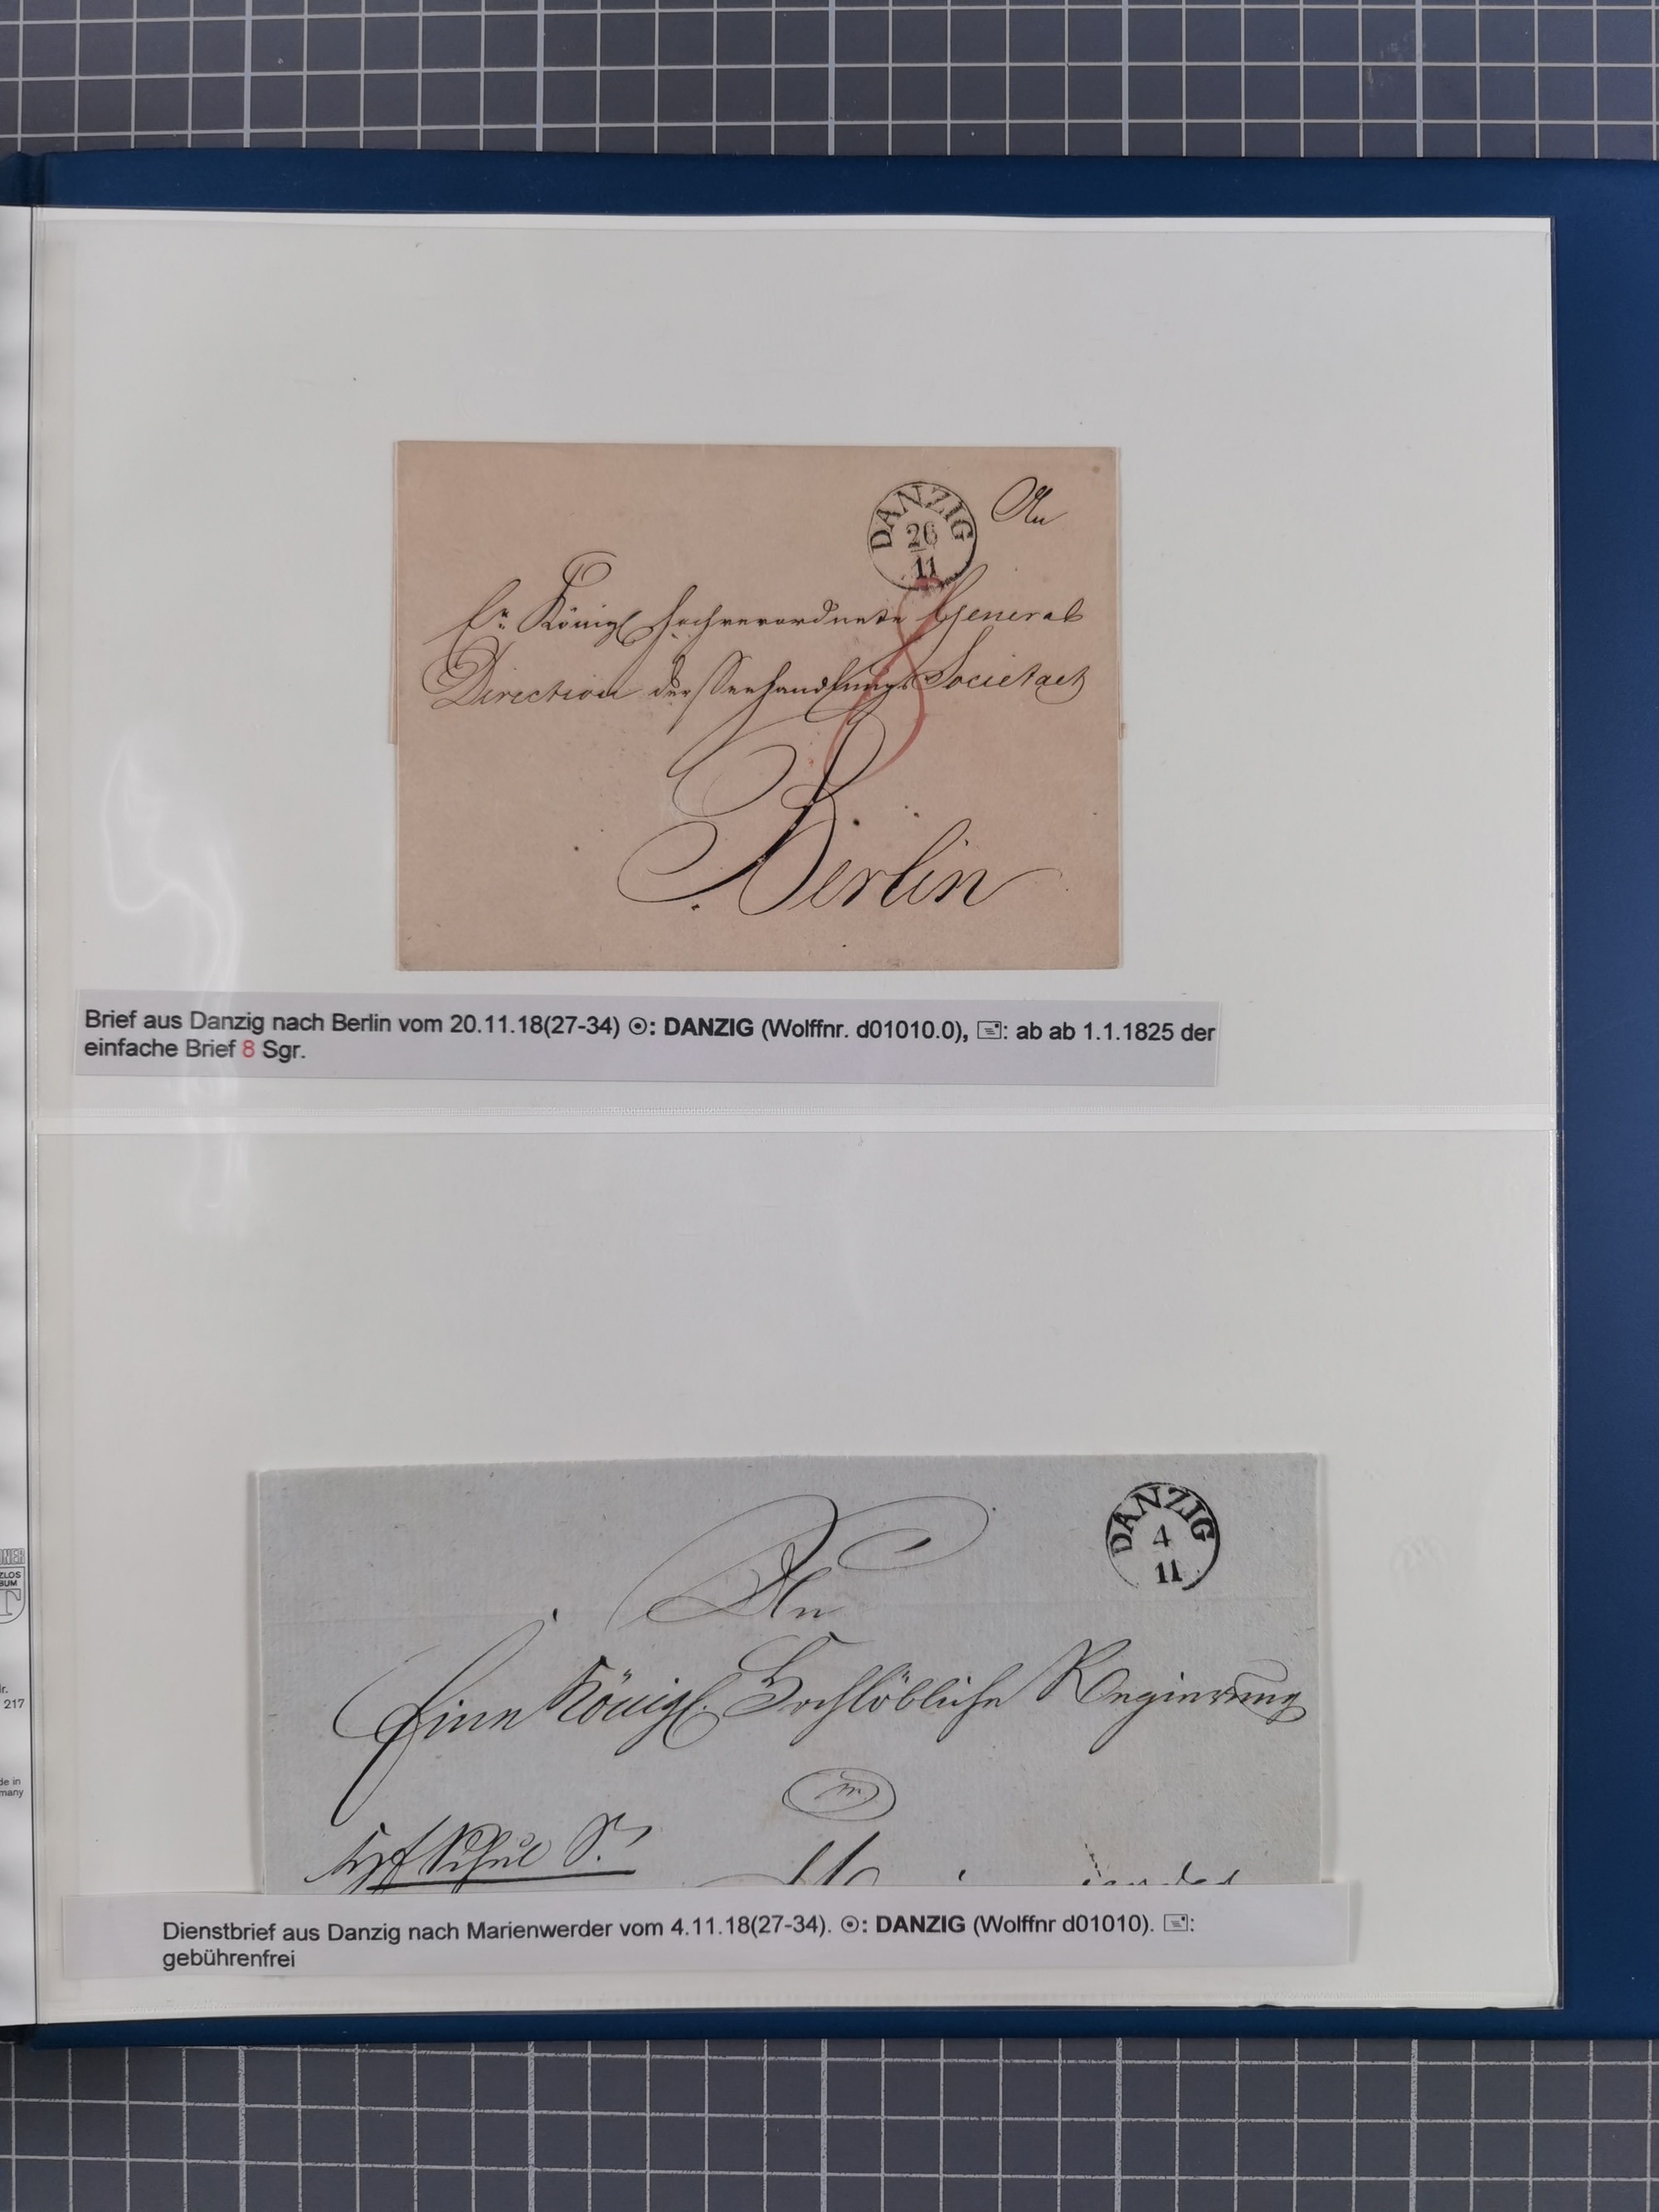 DANZIG
26
11
An
Er. Königl Hochverordnete General
Direction der Seehandlungs Societaet
8
Berlin
Brief aus Danzig nach Berlin vom 20.11.18(27-34) ☉: DANZIG (Wolffnr. d01010.0), 🖃: ab ab 1.1.1825 der
einfache Brief 8 Sgr.
DANZIG
4
11
An
Eine Königl. Hochlöbliche Regierung
Dienstbrief aus Danzig nach Marienwerder vom 4.11.18(27-34). ☉: DANZIG (Wolffnr d01010). 🖃:
gebührenfrei
217